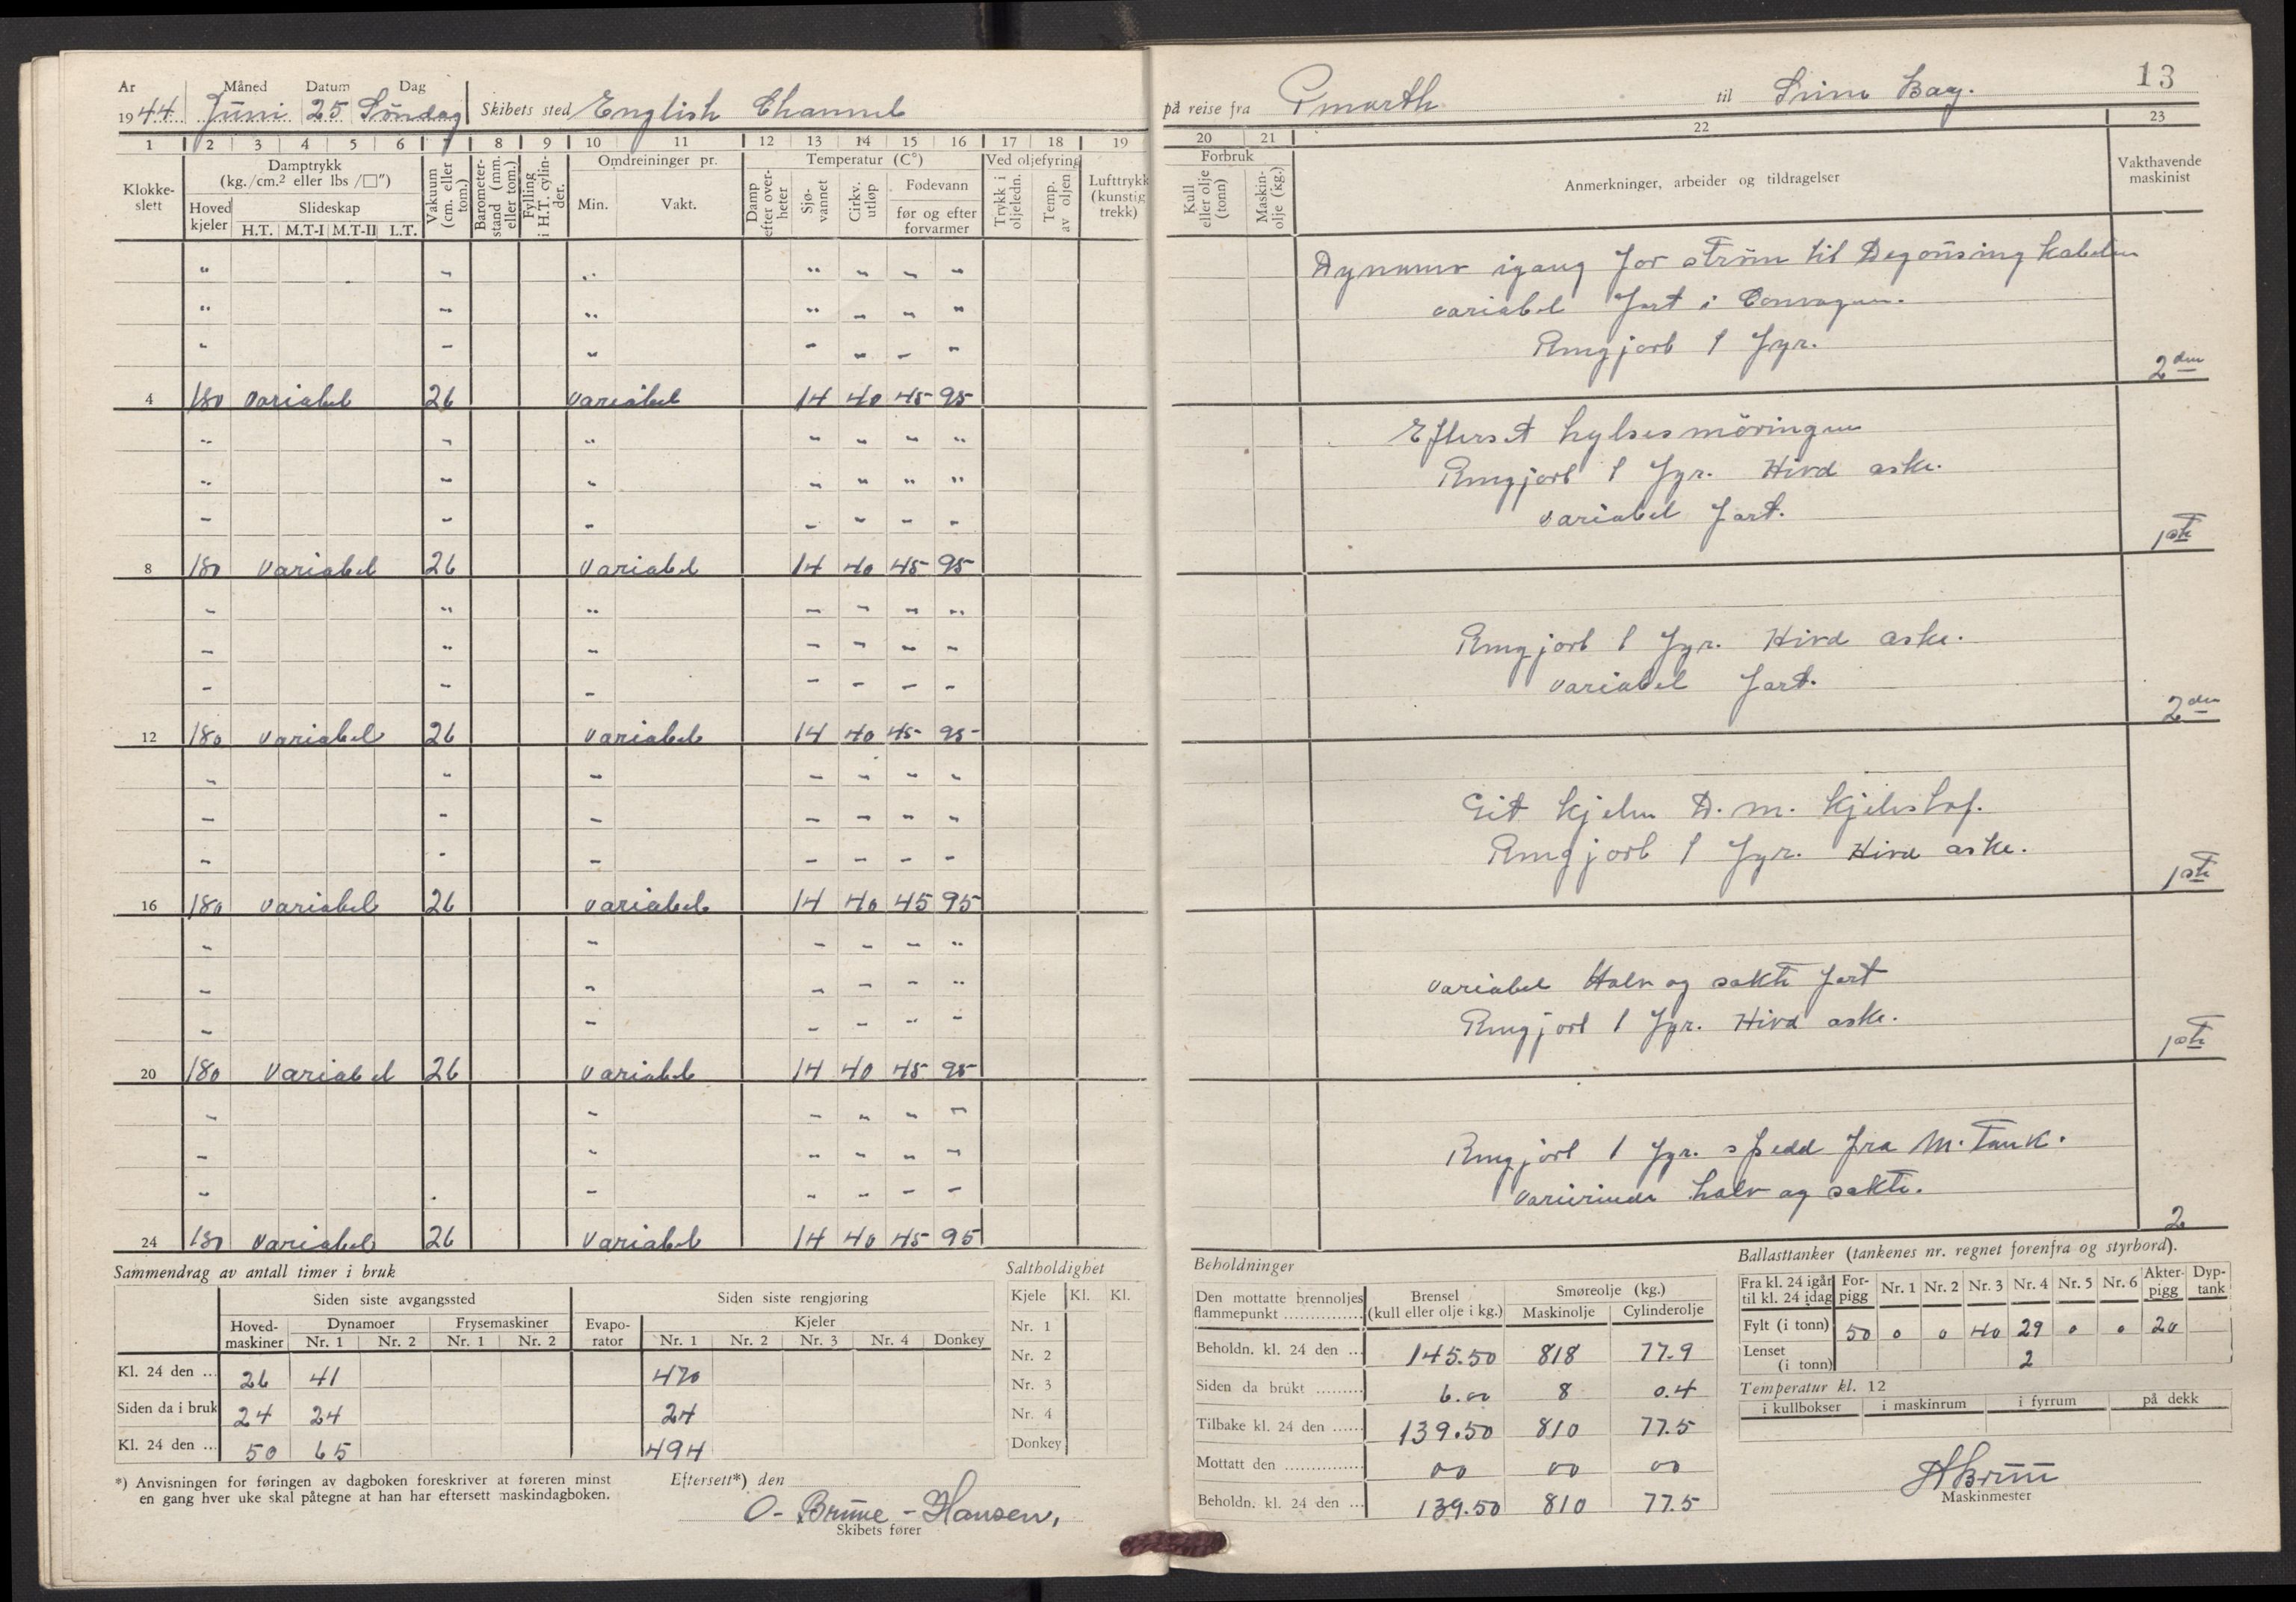 År Måned Datum Dag
1944 Juni 25 Söndag Skibets sted English Channel
1 2 3 4 5 6 7 8 9 10 11 12 13 14 15 16 17 18 19
Klokke-slett
Damptrykk (kg./cm.² eller lbs/□")
Hoved kjeler
Slideskap
H.T. M.T-I M.T-II L.T.
Vakuum (cm. eller tom.)
Barometer-stand (mm. eller tom.)
Fylling i H.T. cylin-der.
Omdreininger pr.
Min. Vakt.
Temperatur (C°)
Damp efter over-heter
Sjø-vannet
Cirkv. utløp
Fødevann
før og efter forvarmer
Ved oljefyring
Trykk i oljeledn.
Temp. av oljen
Lufttrykk (kunstig trekk)
4 180 variabel 26 variabel 14 40 45 95
8 180 variabel 26 variabel 14 40 45 95
12 180 variabel 26 variabel 14 40 45 95
16 180 variabel 26 variabel 14 40 45 95
20 180 variabel 26 variabel 14 40 45 95
24 180 variabel 26 variabel 14 40 45 95
Sammendrag av antall timer i bruk
Siden siste avgangssted Siden siste rengjøring
Hoved-maskiner Dynamoer Frysemaskiner Evapo-rator Kjeler
Nr. 1 Nr. 2 Nr. 1 Nr. 2 Nr. 1 Nr. 2 Nr. 3 Nr. 4 Donkey
Kl. 24 den ... 26 41 470
Siden da i bruk 24 24 24
Kl. 24 den ... 50 65 494
Saltholdighet
Kjele Kl. Kl.
Nr. 1
Nr. 2
Nr. 3
Nr. 4
Donkey
*) Anvisningen for føringen av dagboken foreskriver at føreren minst
en gang hver uke skal påtegne at han har eftersett maskindagboken.
Eftersett*) den
O. Brüne-Hansen,
Skibets fører
13
på reise fra til Bay.
20 21 22 23
Forbruk
Kull eller olje (tonn)
Maskin-olje (kg.)
Anmerkninger, arbeider og tildragelser
Vakthavende maskinist
Dynamo igang for ström til Degousing kabelen
variabel fart i Convoyen.
Rengjort 1 fyr.
2den
Efterset hylsesmöringen
Rengjort 1 fyr. Hivd aske.
variabel fart.
1ste
Rengjort 1 fyr. Hivd aske.
variabel fart.
2den
Git kjelen D. m. kjelestof.
Rengjort 1 fyr. Hivd aske.
1ste
variabel Halv og sakte fart
Rengjort 1 fyr. Hivd aske.
1ste
Rengjort 1 fyr. spedd fra M. Tank.
varierende halv og sakte.
2
Beholdninger
Den mottatte brennoljes flammepunkt ...............
Brensel (kull eller olje i kg.)
Smøreolje (kg.)
Maskinolje Cylinderolje
Beholdn. kl. 24 den ... 145.50 818 77.9
Siden da brukt ......... 6.00 8 0.4
Tilbake kl. 24 den ...... 139.50 810 77.5
Mottatt den ............... 00 00 00
Beholdn. kl. 24 den ... 139.50 810 77.5
Ballasttanker (tankenes nr. regnet forenfra og styrbord).
Fra kl. 24 igår til kl. 24 idag For-pigg Nr. 1 Nr. 2 Nr. 3 Nr. 4 Nr. 5 Nr. 6 Akter-pigg Dyp-tank
Fylt (i tonn) 50 0 0 40 29 0 0 20
Lenset (i tonn) 2
Temperatur kl. 12
i kullbokser i maskinrum i fyrrum på dekk
Maskinmester